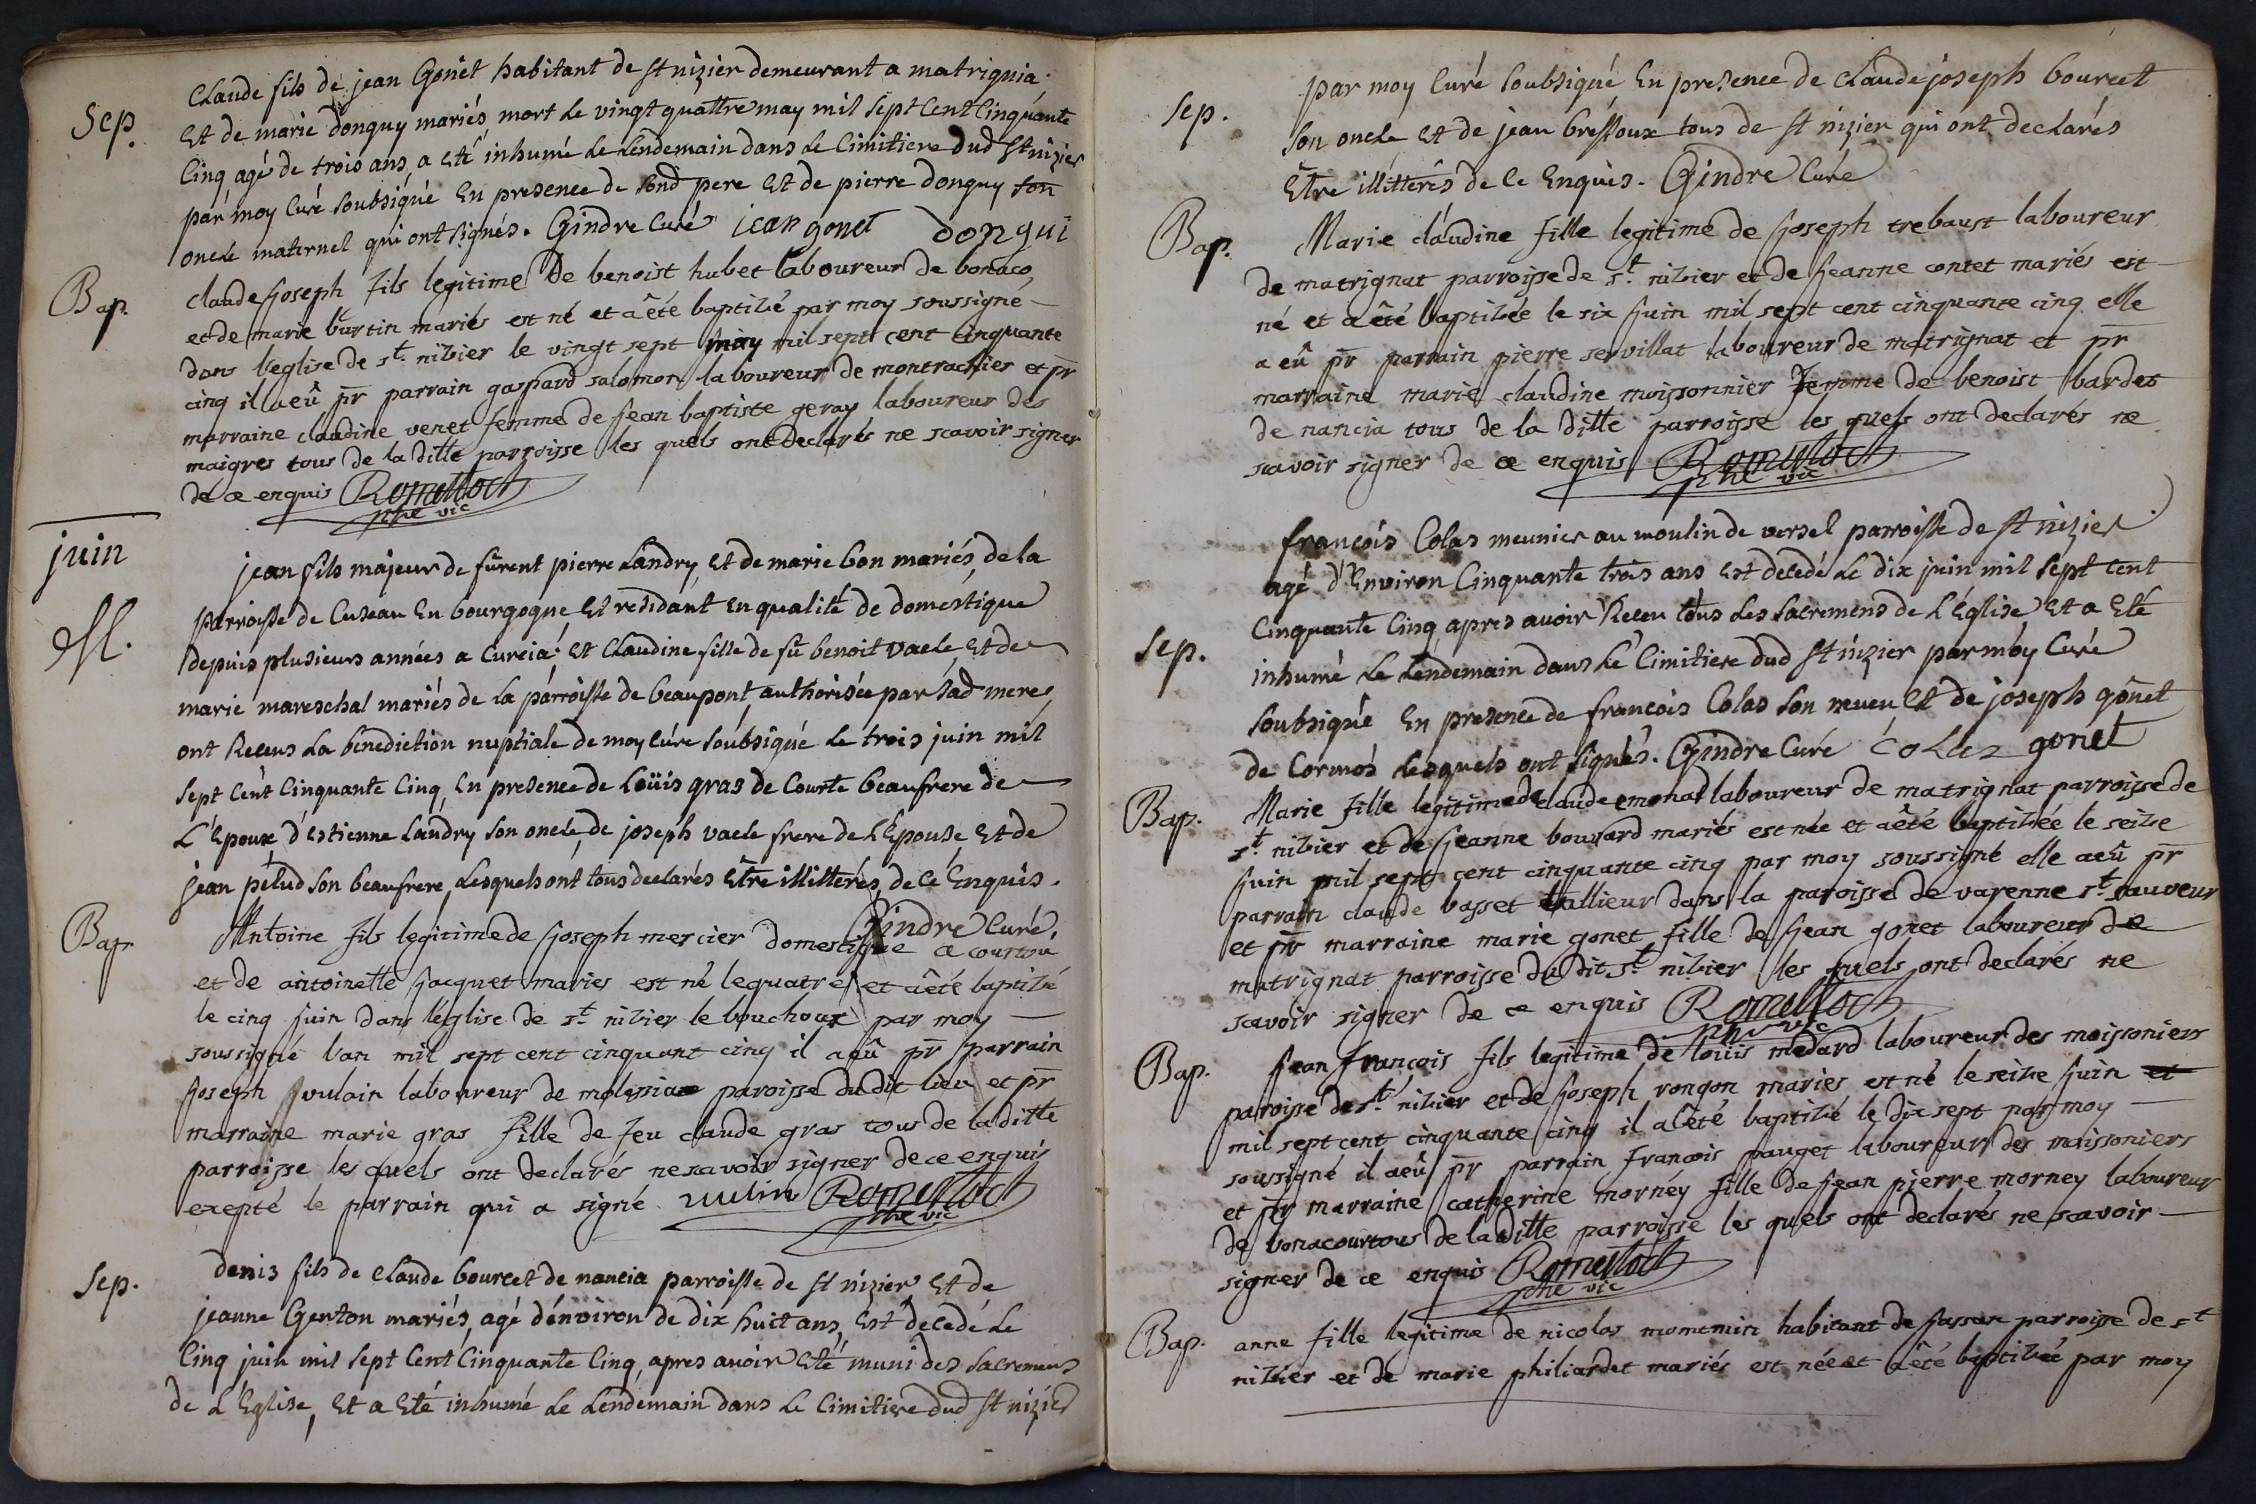 Claude fils de jean Gonet habitant de St nizier demeurant a matrignia
Sep. Et de marie donguy mariés mort Le vingt quattre may mil sept Cent Cinquante
Cinq agé de trois ans, a eté inhumé Le Lendemain dans Le Cimitiere dud St nizier
par moy Curé soubsigné En presence de sond pere Et de pierre donguy son
oncle maternel qui ont signés. Gindre Curé jean gonet donguî
Bap. claude joseph fils legitime de benoist hubet laboureur de bonaco
et de marie burtin mariés est né et a êté baptizé par moy soussigné
dans l'eglise de st. nizier le vingt sept may mil sept cent cinquante
cinq il a eû pr parrain gaspard salomon laboureur de montrachier et pr
marraine claudine venet femme de jean baptiste geray laboureur des
maigres tous de la ditte parroisse les quels ont declarés ne scavoir signer
de ce enquis Romettoch
ptre vic
juin
jean fils majeur de fûrent pierre Landry, Et de marie bon mariés, de la
parroisse de Cuseau En bourgogne, Et residant En qualité de domestique
M. depuis plusieurs années a Curcia: Et Claudine fille de fû benoit vacle, Et de
marie mareschal mariés de La parroisse de beaupont, authorisée par sad mere,
ont Receus La benediction nuptiale de moy Curé soubsigné Le trois juin mil
sept Cent Cinquante Cinq, En presence de Loüis gras de Courte beaufrere de
L'Epoux d'Estienne Landry son oncle, de joseph vacle frere de L'Epouse, Et de
jean petud son beaufrere, Lesquels ont tous declarés Etre illitterés, de Ce Enquis.
Gindre Curé.
Bap. Antoine fils legitime de joseph mercier domestique a courtou
et de antoinette jacquet mariés est né le quatre et a êté baptizé
le cinq juin dans l'église de st. nizier le bouchoux par moy
soussigné l'an mil sept cent cinquant cinq il a eû pr parrain
joseph vulain laboureur de molessiat paroisse du dit lieu et pr
marraine marie gras fille de feu claude gras tous de la ditte
parroisse les quels ont declarés ne scavoir signer de ce enquis
exepté le parrain qui a signé vulin Romettoch
ptre vic
Sep. denis fils de Claude bourcet de nancia parroisse de St nizier Et de
jeanne Genton mariés, agé d'énviron de dix huit ans, Est decedé Le
Cinq juin mil sept Cent Cinquante Cinq, apres avoir Eté muni des sacremens
de L'Eglise, Et a Eté inhumé Le Lendemain dans Le Cimitiere dud St nizier
par moy Curé soubsigné En presence de Claude joseph bourcet
Sep. son oncle Et de jean bressoux tous de St nizier qui ont declarés
Etre illitterés de Ce Enquis. Gindre Curé
Bap. Marie claudine fille legitime de joseph trebaust laboureur
de matrignat parroisse de st. nizier et de jeanne contet mariés est
né et a êté baptizée le six juin mil sept cent cinquante cinq elle
a eû pr parrain pierre servillat laboureur de matrignat et pr
marraine marie claudine moissonnier femme de benoist bardet
de nancia tous de la ditte parroisse les quels ont declarés ne
scavoir signer de ce enquis Romettoch
ptre vic
françois Colas meunier au moulin de versel parroisse de St nizier
agé d'Environ Cinquante trois ans Est decedé Le dix juin mil sept Cent
Cinquante Cinq, apres avoir Receu tous Les sacremens de L'Eglise, Et a Eté
Sep. inhumé Le Lendemain dans Le Cimitiere dud St nizier par moy Curé
soubsigné En presence de françois Colas son neveu, Et de joseph gonet
de Cormos Lesquels ont signés. Gindre Curé Colas gonet
Bap. Marie fille legitime de claude emonat laboureur de matrignat parroisse de
st. nizier et de jeanne bouvard mariés est née et a êté baptizée le seize
juin mil sept cent cinquante cinq par moy soussigné elle a eû pr
parrain claude vasset tallieur dans la paroisse de varenne st. sauveur
et pr marraine marie gonet fille de jean gonet laboureur de
matrignat parroisse du dit st. nizier les quels ont declarés ne
scavoir signer de ce enquis Romettoch
ptre vic
Bap. jean françois fils legitime de louis medard laboureur des moissoniers
paroisse de st. nizier et de joseph rongon mariés est né le seize juin et
mil sept cent cinquante cinq il a êté baptizé le dix sept par moy
soussigné il a eû pr parrain françois pauget laboureur des moissoniers
et pr marraine catherine morney fille de jean pierre morney laboureur
de bonacour tous de la ditte parroisse les quels ont declarés ne scavoir
signer de ce enquis Romettoch
ptre vic
Bap. anne fille legitime de nicolas momemin habitant de parroisse de st
nizier et de marie philiardet mariés est née et a êté baptizée par moy